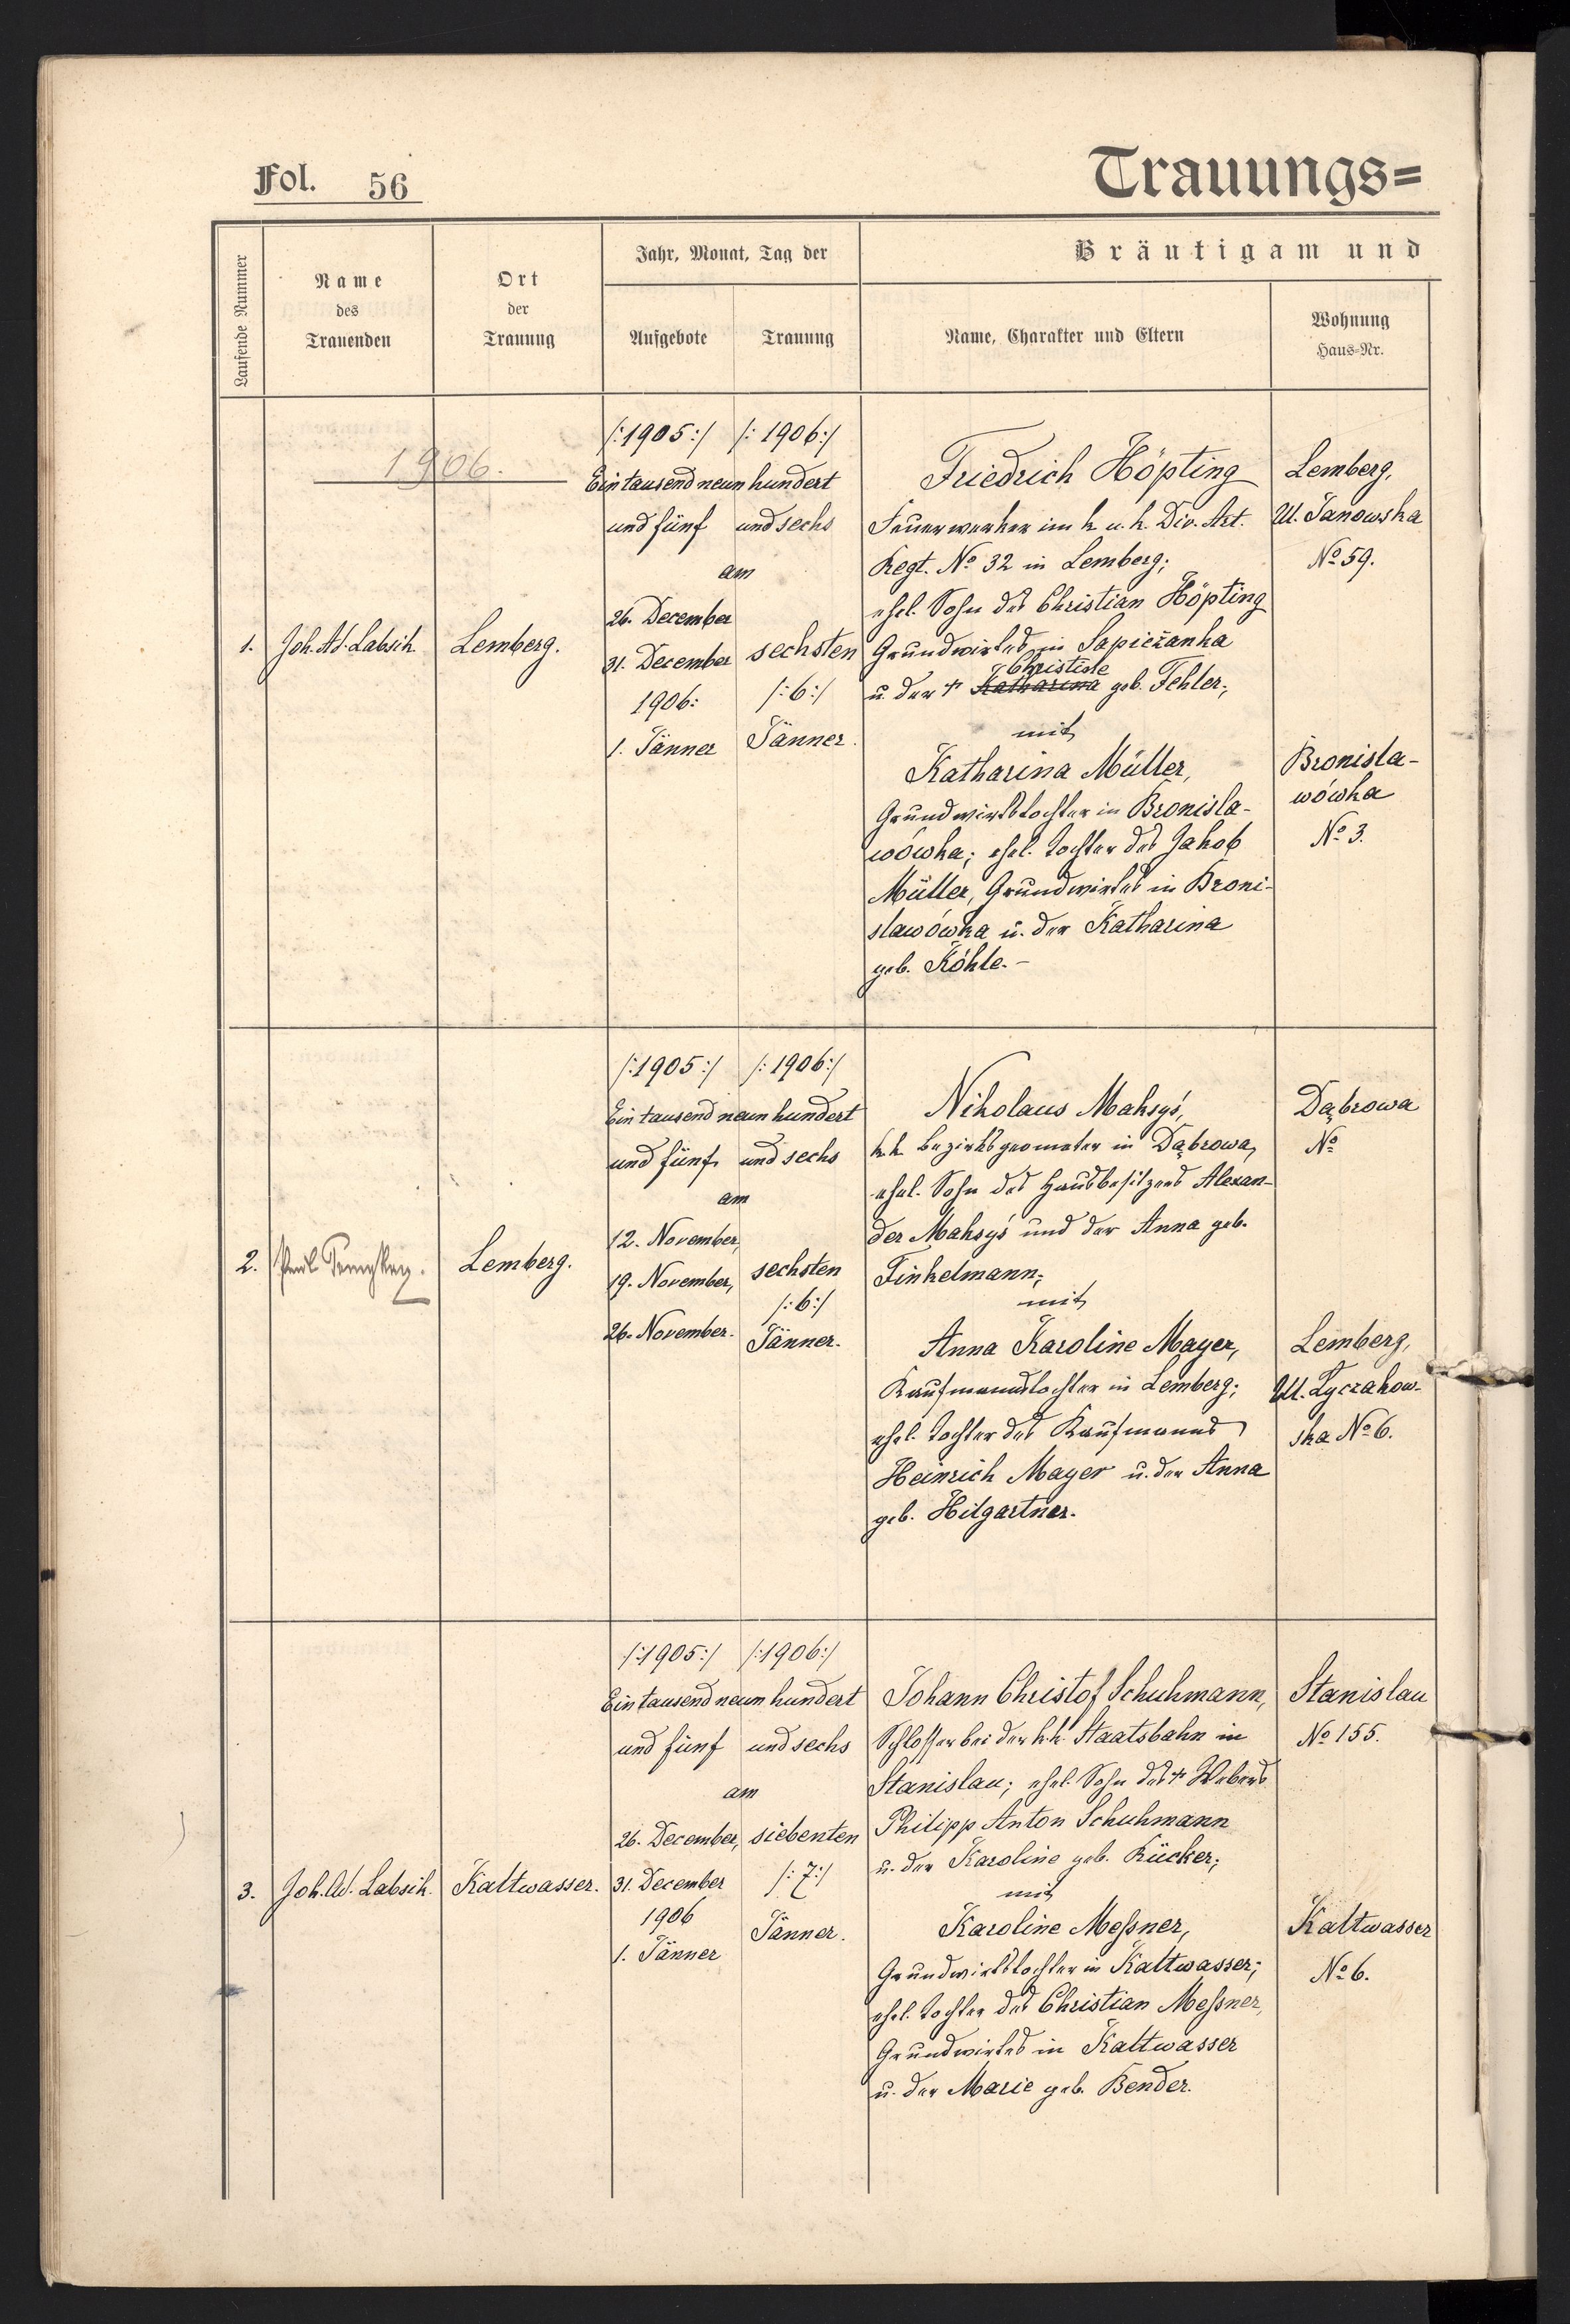 Fol. 56
Trauungs=
Laufende Nummer
Name
des
Trauenden
Ort
der
Trauung
Jahr, Monat, Tag der
Aufgebote
Trauung
Bräutigam und
Name, Charakter und Eltern
Wohnung
Haus=Nr.
1906.
1.
Joh. Ad. Labsik
Lemberg.
/:1905:/ /:1906:/
Ein tausend neun hundert
und fünf und sechs
am
26. December
31. December
1906:
1. Jänner
sechsten
/:6:/
Jänner.
Friedrich Höpting
Feuerwerker im k. u. k. Div. Art.
Regt. No 32 in Lemberg;
ehel. Sohn des Christian Höpting
Grundwirtes in Sapieżanka
Christine
u. der † Katharina geb. Fehler;
mit
Katharina Müller,
Grundwirtstochter in Bronisla-
wówka; ehel. Tochter des Jakob
Müller, Grundwirtes in Broni-
slawówka u. der Katharina
geb. Köhle.-
Lemberg,
Ul. Janowska
No 59.
Bronisla-
wówka
No 3.
2.
Lemberg.
/:1905:/ /:1906:/
Ein tausend neun hundert
und fünf und sechs
am
12. November,
19. November,
26. November.
sechsten
/:6:/
Jänner.
Nikolaus Maksyś,
k.k. Bezirksgeometer in Dąbrowa,
ehel. Sohn des Hausbesitzers Alexan-
der Maksyś und der Anna geb.
Finkelmann;
mit
Anna Karoline Mayer,
Kaufmannstochter in Lemberg;
ehel. Tochter des Kaufmanns
Heinrich Mayer u. der Anna
geb. Hilgartner.
Dąbrowa
No
Lemberg,
Ul. Lyczakow-
ska No 6.
3.
Joh. Ad. Labsik.
Kaltwasser.
/:1905:/ /:1906:/
Ein tausend neun hundert
und fünf und sechs
am
26. December,
31. December
1906
1. Jänner
siebenten
/:7:/
Jänner.
Johann Christof Schuhmann,
Schlosser bei der k.k. Staatsbahn in
Stanislau; ehel. Sohn des † Webers
Philipp Anton Schuhmann
u. der Karoline geb. Rücker;
mit
Karoline Meßner,
Grundwirtstochter in Kaltwasser;
ehel. Tochter des Christian Meßner,
Grundwirtes in Kaltwasser
u. der Marie geb. Bender.
Stanislau
No 155.
Kaltwasser
No 6.